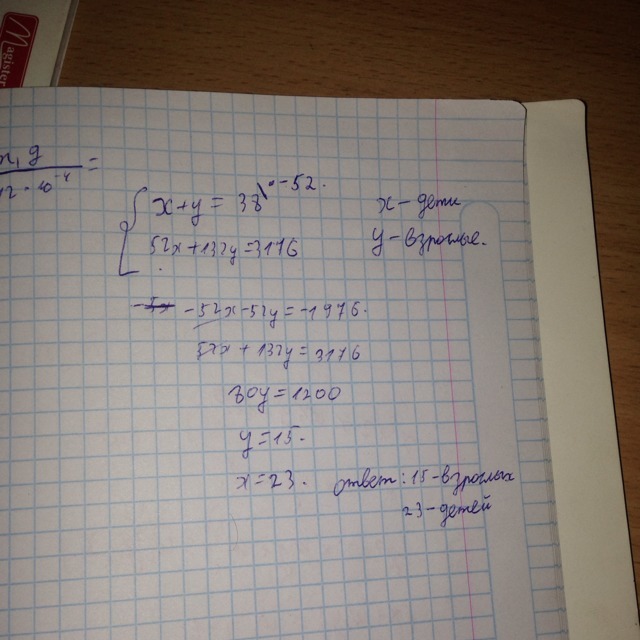 Magister
x+y=38 |·-52.
x-дети
52x+132y=3176
y-взрослые.
-52x-52y=-1976.
52x+132y=3176
80y=1200
y=15.
x=23.
ответ: 15-взрослых
23-детей